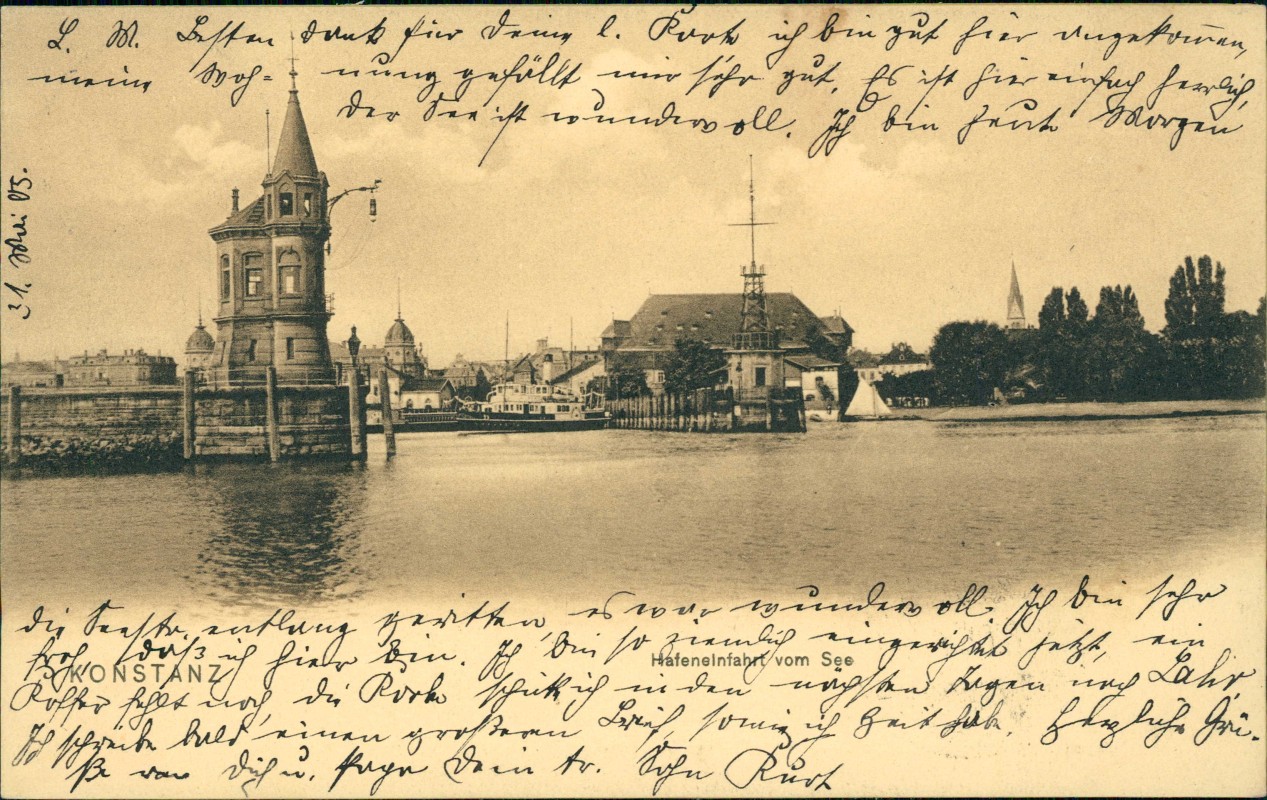 L. M. Besten Dank für Deine l. Karte ich bin gut hier angekommen,
meine Woh= nung gefällt mir sehr gut. Es ist hier einfach herrlich,
der See ist wundervoll. Ich bin heute Morgen
31. Mai 05.
die Seestr. entlang geritten, es war wundervoll. Ich bin sehr
froh, daß ich hier bin. Ich bin so ziemlich eingerichtet jetzt, ein
KONSTANZ
Hafeneinfahrt vom See
Koffer fehlt noch, die Karte schick ich in den nächsten Tagen nach Lahr,
Ich schreibe bald einen großeren Brief, sowie ich Zeit habe. Herzliche Grü-
ße an Dich u. Papa Dein tr. Sohn Kurt